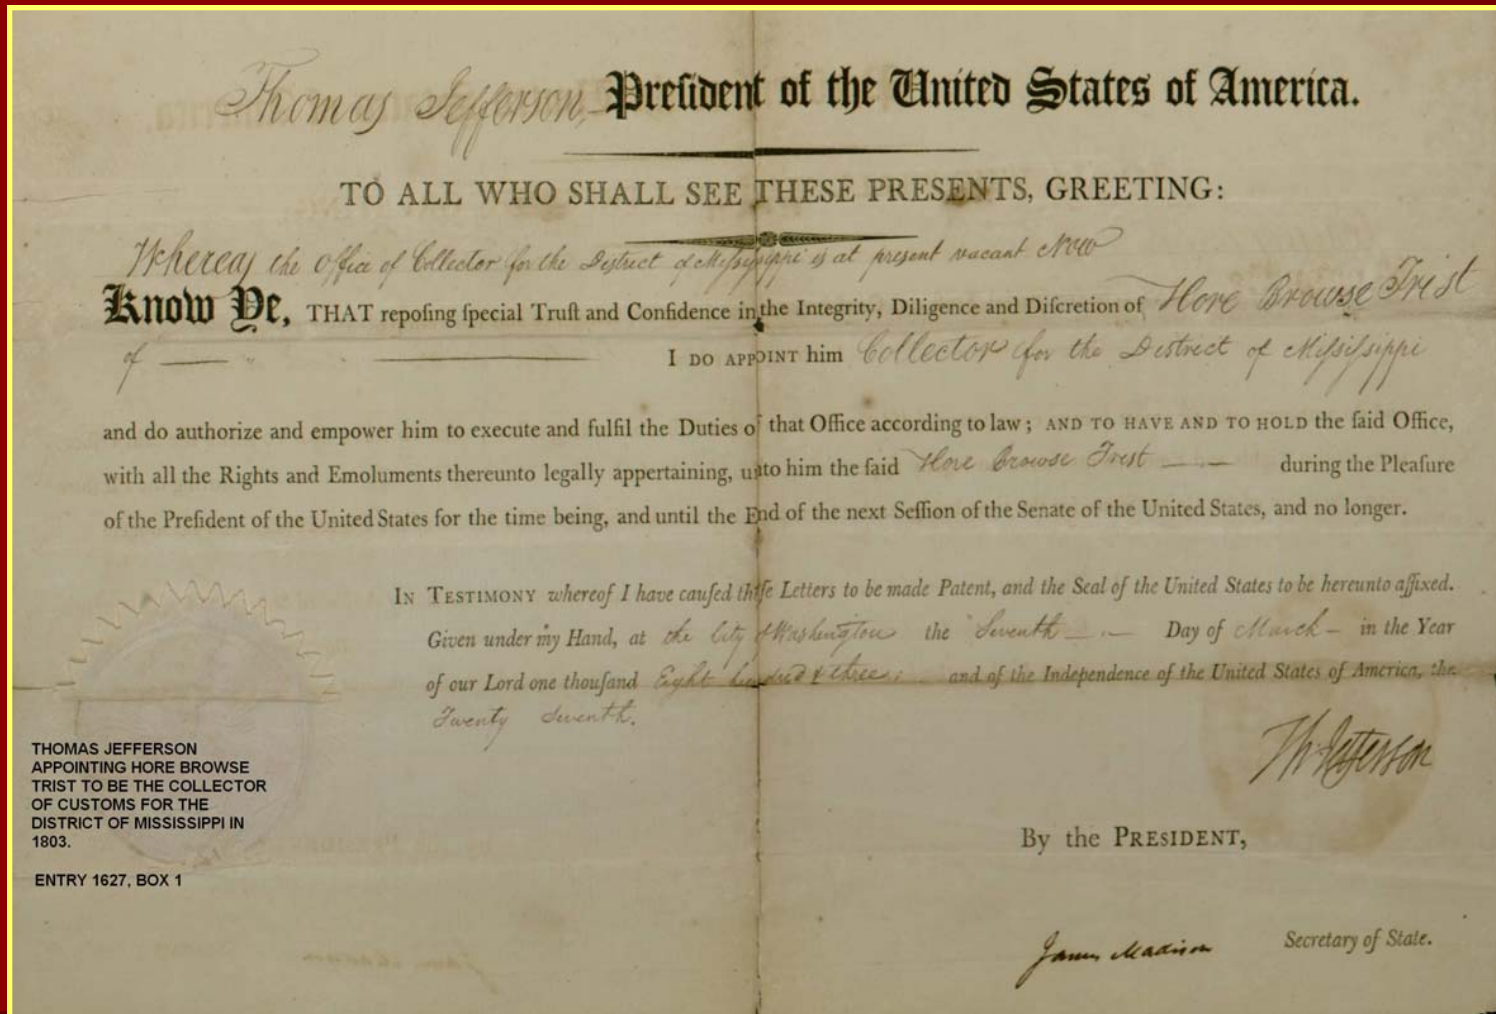 Thomas Jefferson, Preſident of the United States of America.
TO ALL WHO SHALL SEE THESE PRESENTS, GREETING:
Whereas the Office of Collector for the District of Miſsiſsippi is at present vacant Now
Know Ye, THAT repoſing ſpecial Truſt and Confidence in the Integrity, Diligence and Diſcretion of Hore Browse Trist
of I DO APPOINT him Collector for the District of Miſsiſsippi
and do authorize and empower him to execute and fulfil the Duties of that Office according to law; AND TO HAVE AND TO HOLD the ſaid Office,
with all the Rights and Emoluments thereunto legally appertaining, unto him the ſaid Hore Browse Trist — — during the Pleaſure
of the Preſident of the United States for the time being, and until the End of the next Seſſion of the Senate of the United States, and no longer.
IN TESTIMONY whereof I have cauſed theſe Letters to be made Patent, and the Seal of the United States to be hereunto affixed.
Given under my Hand, at the City of Washington the Seventh — Day of March — in the Year
of our Lord one thouſand Eight hundred & three; and of the Independence of the United States of America, the
Twenty Seventh.
Th: Jefferson
THOMAS JEFFERSON
APPOINTING HORE BROWSE
TRIST TO BE THE COLLECTOR
OF CUSTOMS FOR THE
DISTRICT OF MISSISSIPPI IN
1803.
ENTRY 1627, BOX 1
By the PRESIDENT,
James Madison Secretary of State.